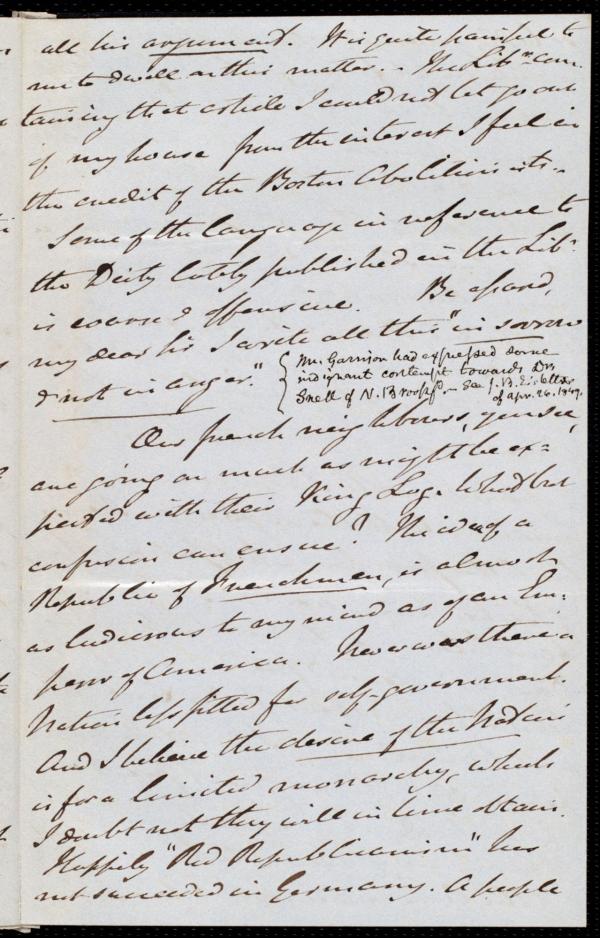 all his argument. It is quite painful to
me to dwell on this matter. - The Libr. con-
taining that article I could not let go out
of my house from the interest I feel in
the credit of the Boston Abolitionists. -
Some of the language in reference to
the Deity lately published in the Libr.
is coarse & offensive. Be assured,
my dear Sir I write all this "in sorrow
& not in anger."
{ Mr. Garrison had expressed some
indignant contempt towards Dr.
Snell of N. Brookfd. - See J. B. E's letter
of Apr. 26. 1849.
Our french neighbours, you see,
are going on much as might be ex=
pected with their King Log. What but
confusion can ensue? The idea of a
Republic of Frenchmen, is almost
as ludicrous to my mind as of an Em-
peror of America. Never was there a
Nation less fitted for self-government.
And I believe the desire of the Nation
is for a limited monarchy, which
I doubt not they will in time obtain.
Happily "Red Republicanism" has
not succeeded in Germany. A people